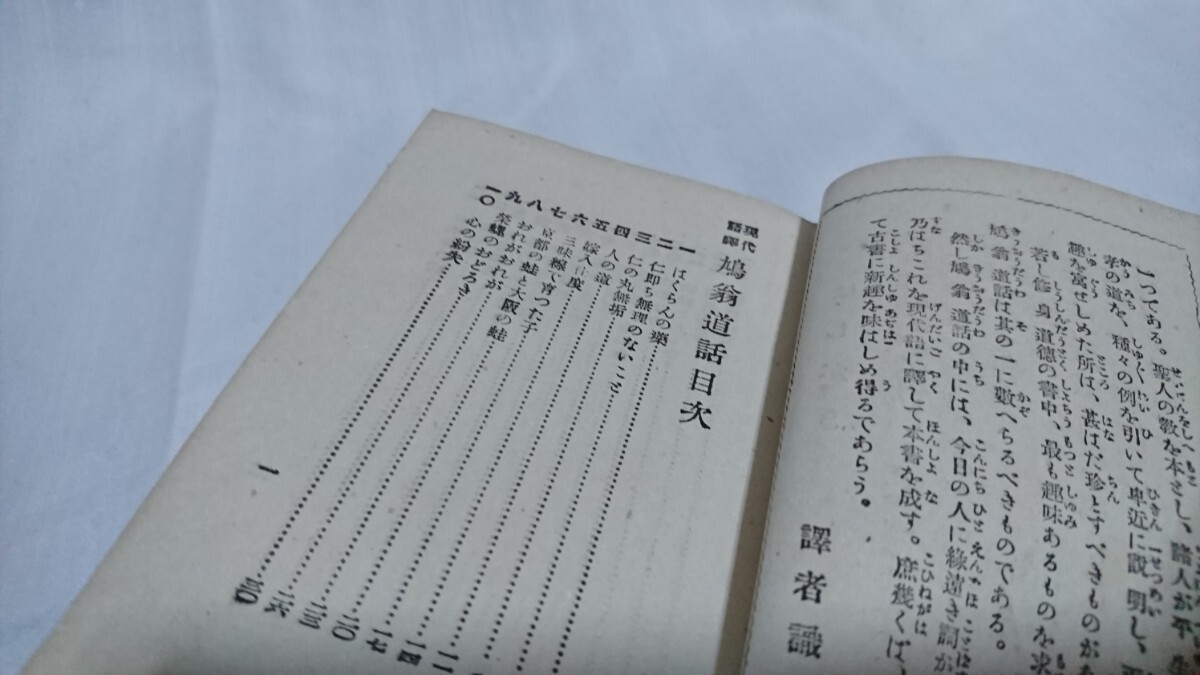 一つてある。聖人の敎を本とし、諸人が
孝の道を、種々の例を引いて卑近に說明し、
趣を寓せしめた所は、甚はだ珍とすべきものが
若し修身道德の書中、最も趣味あるものを求
鳩翁道話は其の一に數へらるべきものである。
然し鳩翁道話の中には、今日の人に緣遠き詞が
乃はちこれを現代語に譯して本書を成す。庶幾くば、
て古書に新趣を味はしめ得るであらう。
譯者識
現代語譯 鳩翁道話目次
一 はくらんの藥
二 仁卽ち無理のないこと
三 仁の丸無垢
四 人の道
五 嫁入仕度
六 三味線で育つた子
七 京都の蛙と大阪の蛙
八 おれがおれが
九 榮螺のおどろき
一〇 心の紛失
一一
一四
一七
二〇
二三
二六
三〇
一